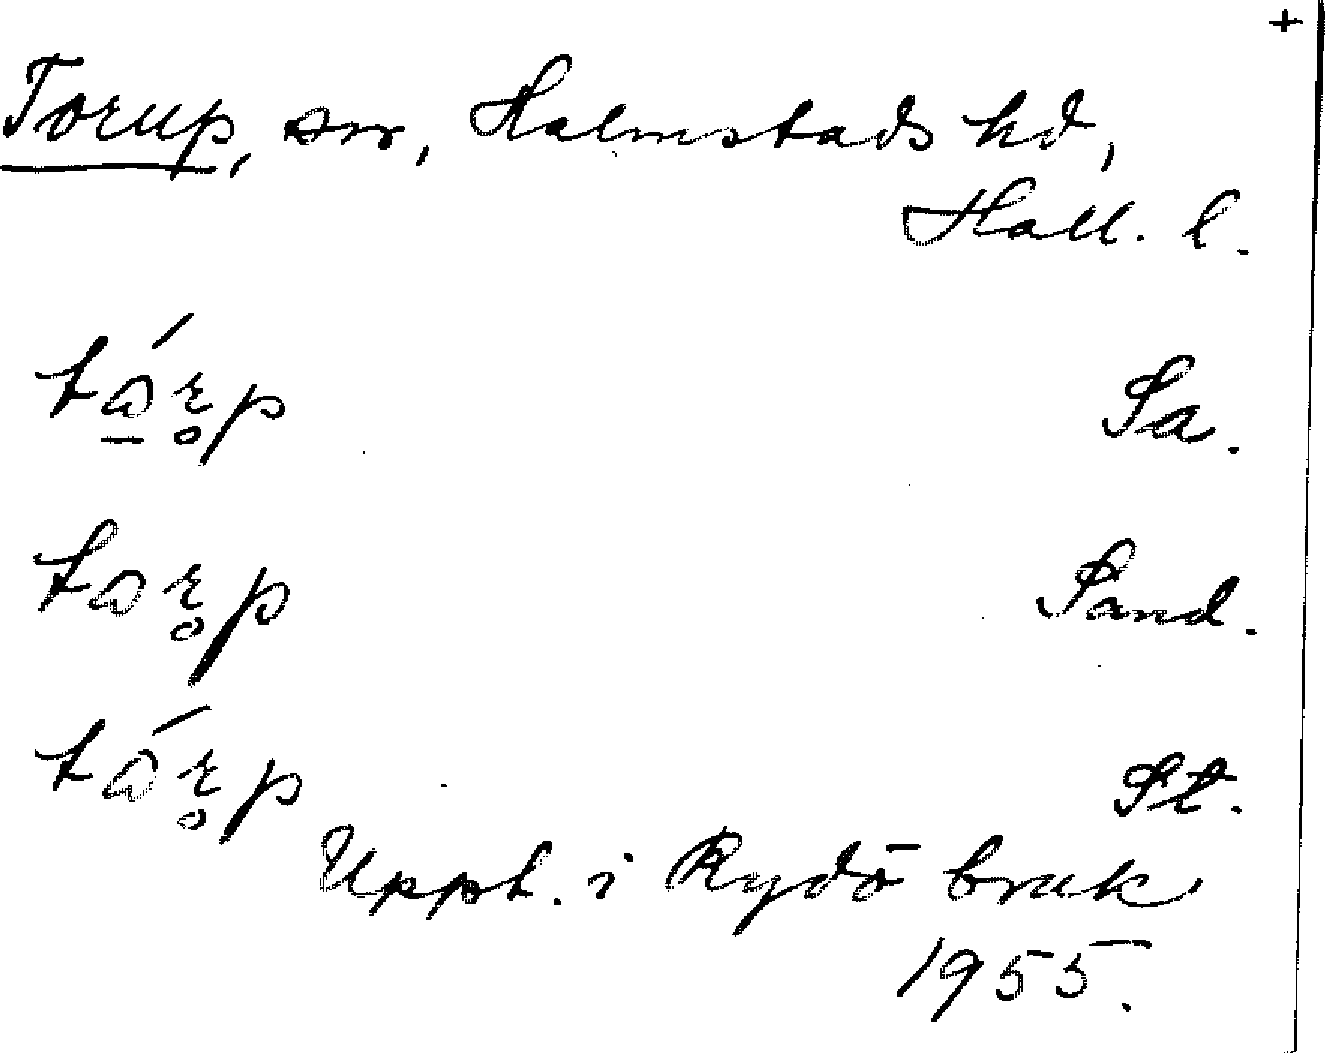 +
Torup, sn, Halmstads hd,
Hall. l.
Sa.
Sand.
St.
Uppt. i Rydö bruk
1955.